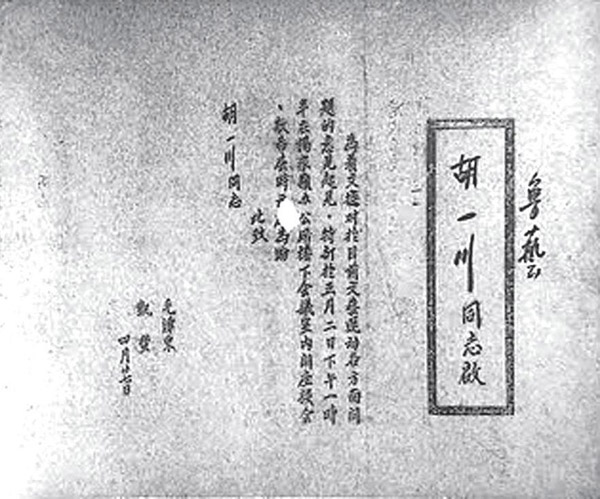 魯藝
胡一川同志啟
為着交換對於目前文藝運動各方面問
題的意見起見,特訂於五月二日下午一時
半在楊家嶺办公廳樓下会議室内開座談会
,敬希届時為盼
此致
胡一川同志
毛澤東
凱豐
四月廿七日